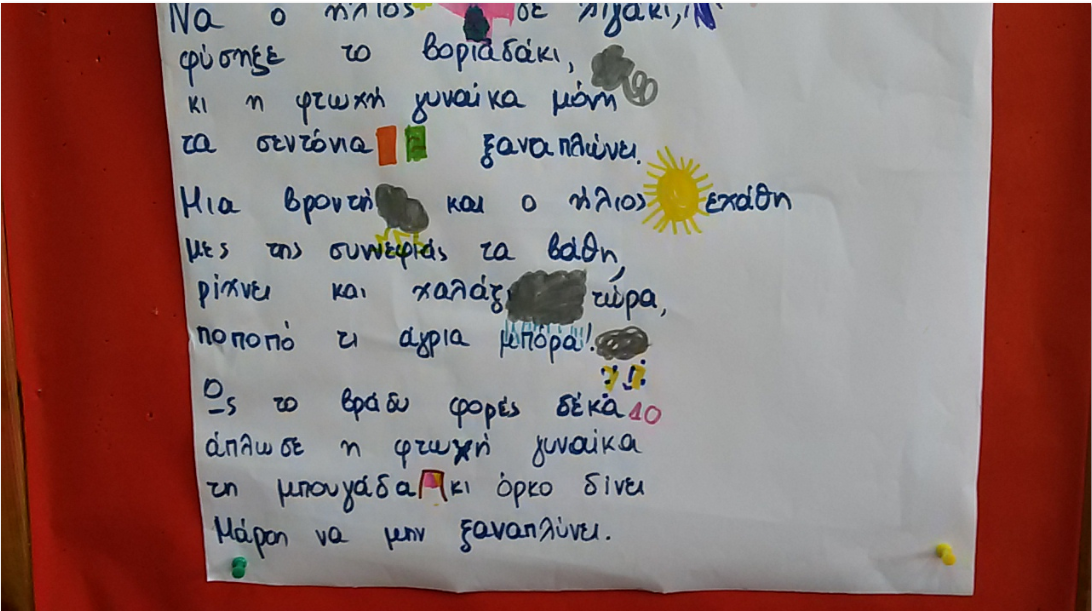 Να ο ήλιος σε λιγάκι,
φύσηξε το βοριαδάκι,
κι η φτωχή γυναίκα μόνη
τα σεντόνια ξαναπλώνει.
Μια βροντή και ο ήλιος εχάθη
μες της συννεφιάς τα βάθη,
ρίχνει και χαλάζι τώρα,
ποποπό τι άγρια μπόρα!
Ως το βράδυ φορές δέκα 10
άπλωσε η φτωχή γυναίκα
τη μπουγάδα κι όρκο δίνει
Μάρτη να μην ξαναπλύνει.